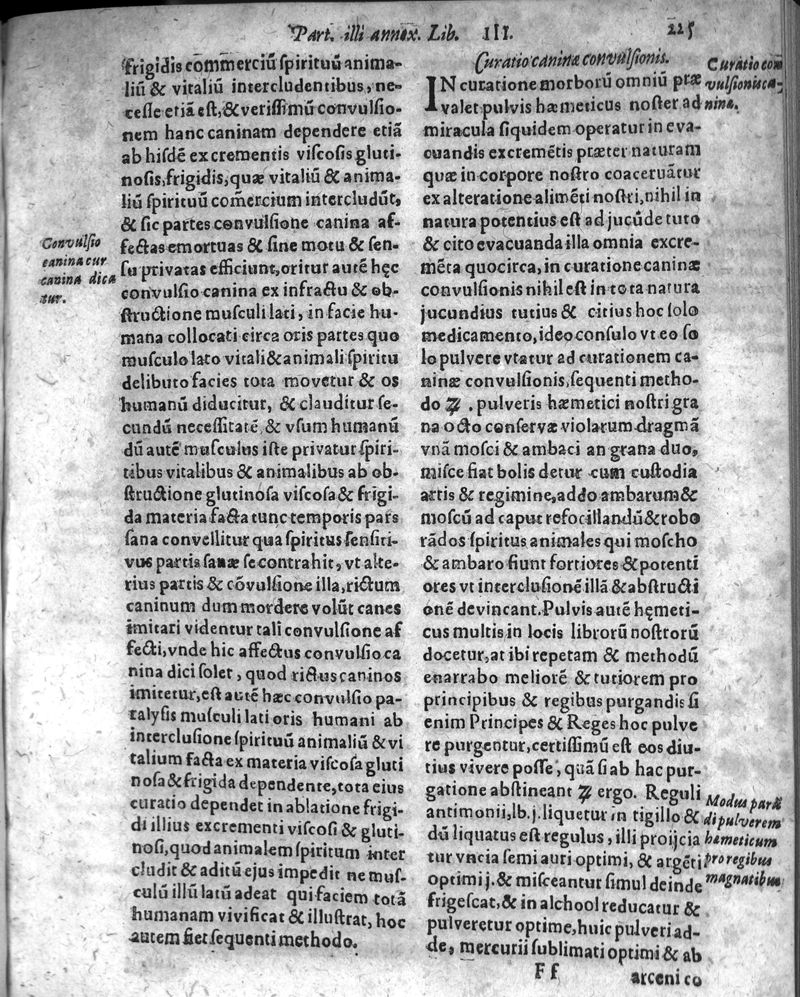 Part. illi annex. Lib. III. 225
frigidis cōmmerciū ſpirituū anima-
liū & vitaliū intercludentibus, ne-
ceſſe etiā eſt, & veriſſimū convulſio-
nem hanc caninam dependere etiā
ab hiſdē excrementis viſcoſis gluti-
noſis, frigidis, quæ vitaliū & anima-
liū ſpirituū comercium intercludūt,
& ſic partes convulſione canina af-
fectas emortuas & ſine motu & ſen-
ſu privatas efficiunt, oritur autē hęc
convulſio canina ex infractu & ob-
ſtructione muſculi lati, in facie hu-
mana collocati circa oris partes quo
muſculo lato vitali & animali ſpiritu
delibuto facies tota movetur & os
humanū diducitur, & clauditur ſe-
cundū neceſſitatē, & vſum humanū
dū autē muſculus iſte privatur ſpiri-
tibus vitalibus & animalibus ab ob-
ſtructione glutinoſa viſcoſa & frigi-
da materia facta tunc temporis pars
ſana convellitur qua ſpiritus ſenſiti-
vus partis ſanæ ſe contrahit, vt alte-
rius partis & cōvulſione illa, rictum
caninum dum mordere volūt canes
imitari videntur tali convulſione af
fecti, vnde hic affectus convulſio ca
nina dici ſolet, quod rictus caninos
imitetur, eſt autē hæc convulſio pa-
ralyſis muſculi lati oris humani ab
intercluſione ſpirituū animaliū & vi
talium facta ex materia viſcoſa gluti
noſa & frigida dependente, tota eius
curatio dependet in ablatione frigi-
di illius excrementi viſcoſi & gluti-
noſi, quod animalem ſpiritum inter
cludit & aditū ejus impedit ne muſ-
culū illū latū adeat qui faciem totā
humanam vivificat & illuſtrat, hoc
autem fiet ſequenti methodo.
Convulſio
canina cur
canina dica
tur.
Curatio caninæ convulſionis.
IN curatione morborū omniū præ
valet pulvis hæmeticus noſter ad
miracula ſiquidem operatur in eva-
cuandis excremētis præter naturam
quæ in corpore noſtro coaceruātur
ex alteratione alimēti noſtri, nihil in
natura potentius eſt ad jucūde tuto
& cito evacuanda illa omnia excre-
mēta quocirca, in curatione caninæ
convulſionis nihil eſt in tota natura
jucundius tutius & citius hoc ſolo
medicamento, ideo conſulo vt eo ſo
lo pulvere vtatur ad curationem ca-
ninæ convulſionis, ſequenti metho-
do ℞. pulveris hæmetici noſtri gra
na octo conſervæ violarum dragmā
vnā moſci & ambaci an grana duo,
miſce fiat bolis detur cum cuſtodia
artis & regimine, addo ambarum &
moſcū ad caput refocillandū & robo
rādos ſpiritus animales qui moſcho
& ambaro fiunt fortiores & potenti
ores vt intercluſionē illā & abſtructi
onē devincant. Pulvis autē hęmeti-
cus multis in locis librorū noſtrorū
docetur, at ibi repetam & methodū
enarrabo meliorē & tutiorem pro
principibus & regibus purgandis ſi
enim Principes & Reges hoc pulve
re purgentur, certiſſimū eſt eos diu-
tius vivere poſſe, quā ſi ab hac pur-
gatione abſtineant ℞ ergo. Reguli
antimonii, lb. j. liquetur in tigillo &
dū liquatus eſt regulus, illi proijcia
tur vncia ſemi auri optimi, & argēti
optimi j. & miſceantur ſimul deinde
frigeſcat, & in alchool reducatur &
pulveretur optime, huic pulveri ad-
de, mercurii ſublimati optimi & ab
Curatio con
vulſionis ca-
nina.
Modus parā
di pulverem
hæmeticum
pro regibus
magnatibus
F f arceni co